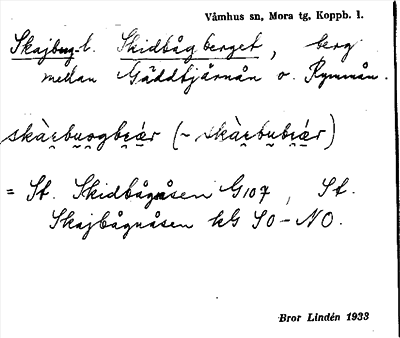 Våmhus sn, Mora tg, Koppb. l.
Skajbug-l. Skidbågberget, berg
mellan Gäddtjärnån o. Rymmån.
skàe̯bu̯o̯gbi̯ær (~ skàe̯bu̯bi̯ær)
= St. Skidbågåsen G107, St.
Skajbågnåsen kb SO-NO.
Bror Lindén 1933